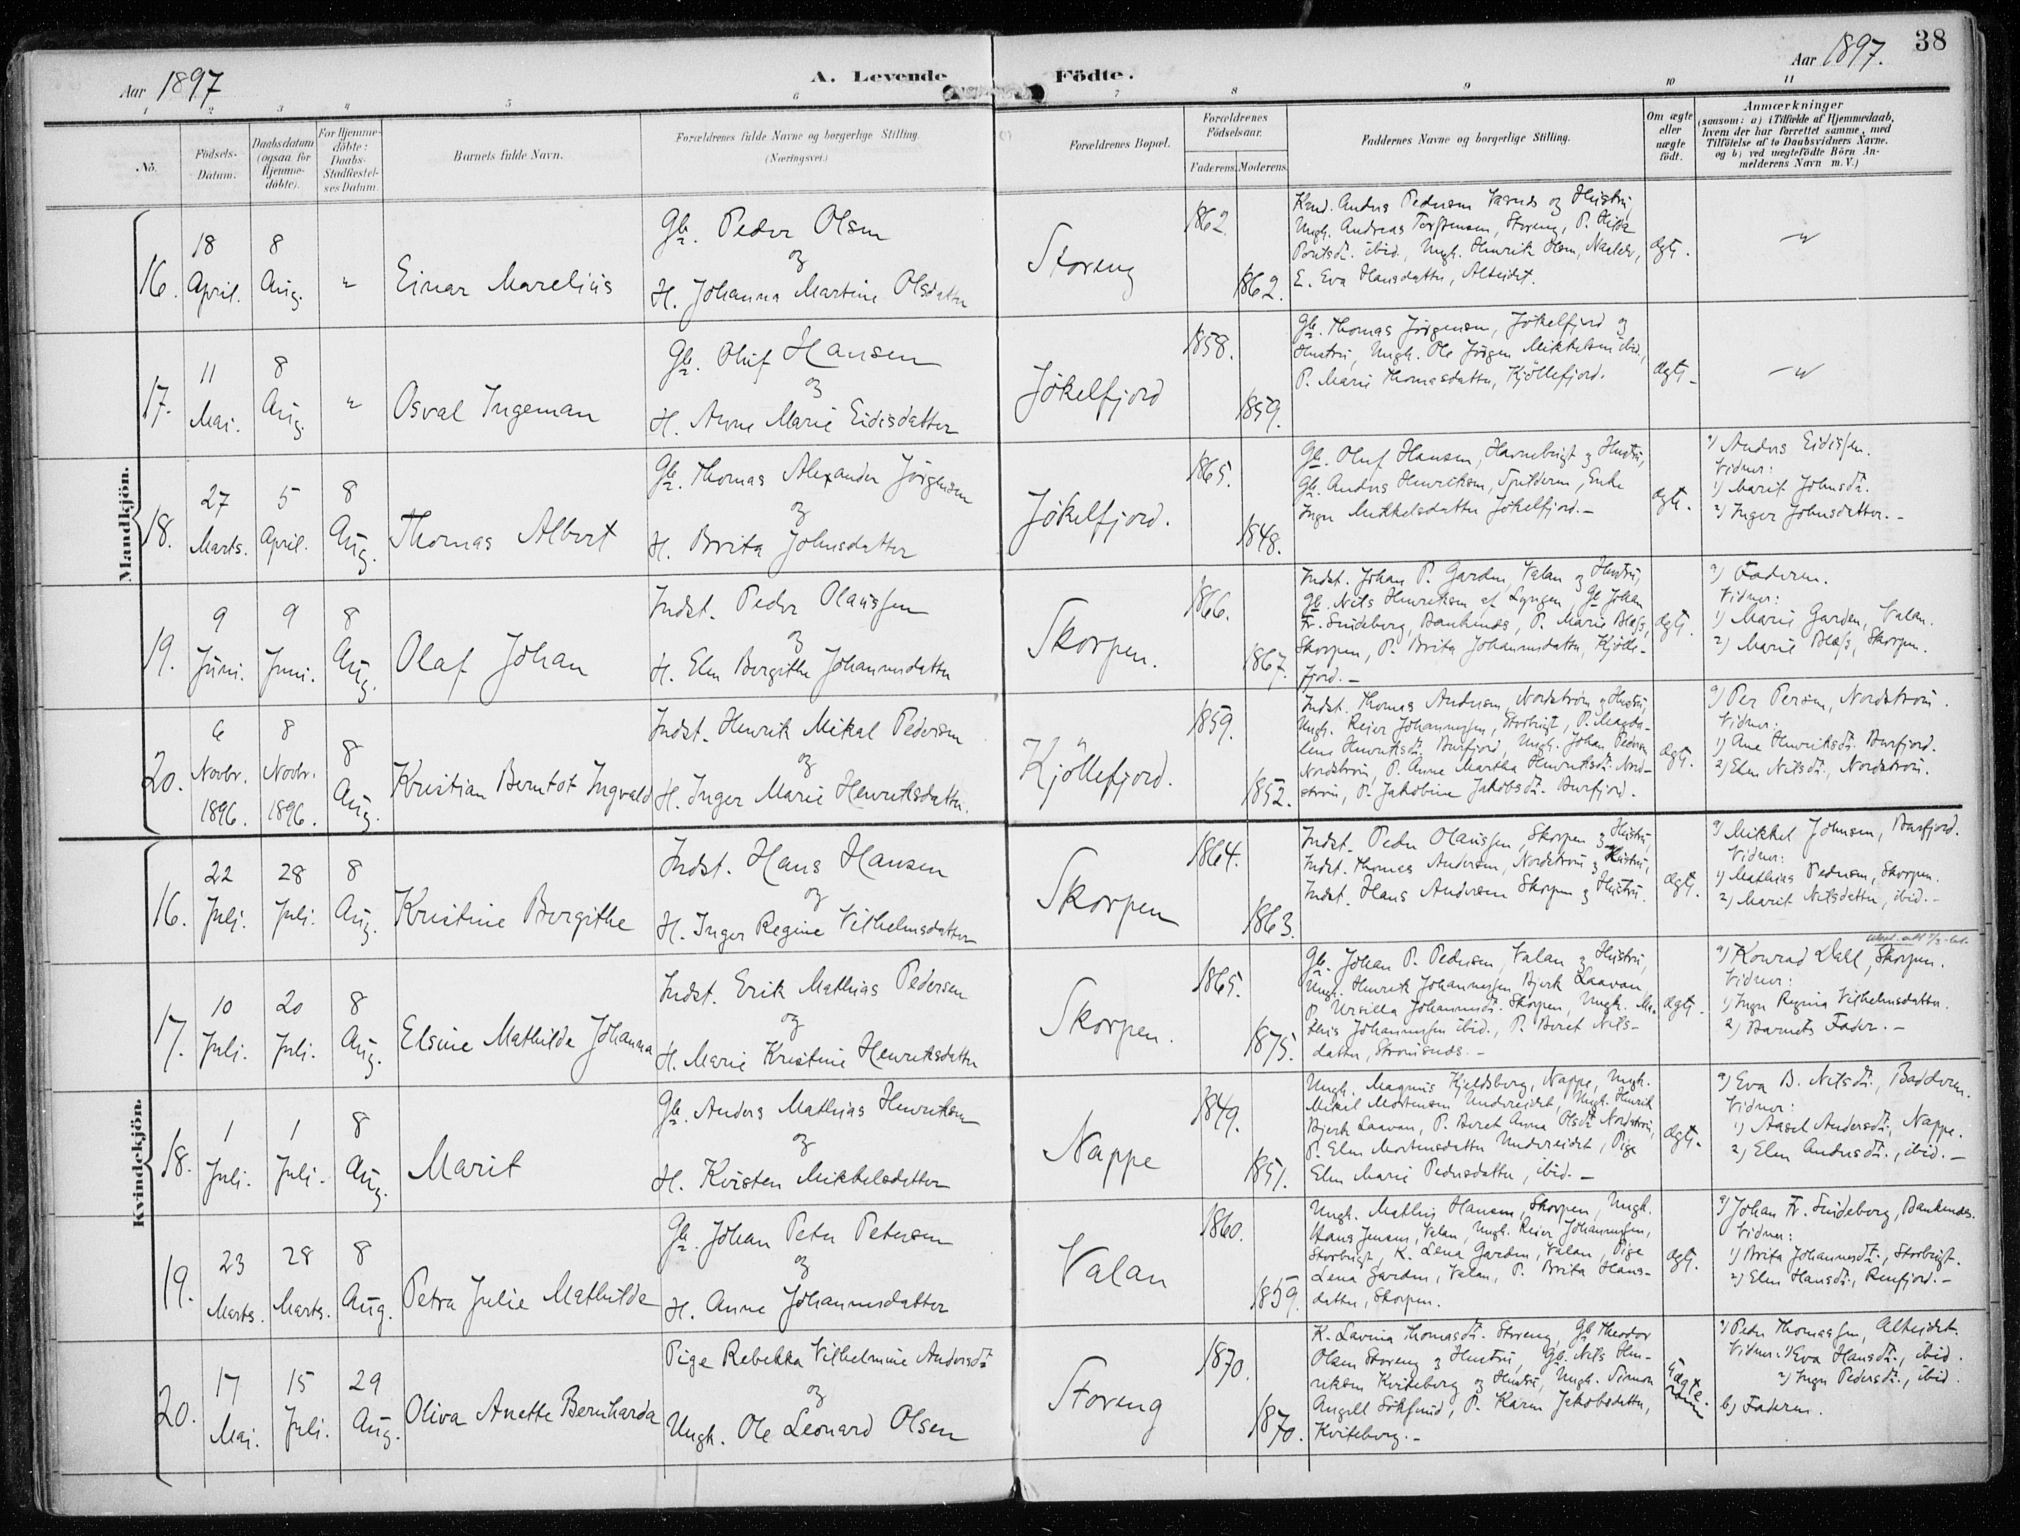 Aar 1897
A. Levende
Födte.
Aar 1897.
38
1 2 3 4 5 6 7 8 9 10 11
No.
Födsels-
Datum.
Daabsdatum
(ogsaa for
Hjemme-
döbte).
For Hjemme-
döbte:
Daabs-
Stadfæstel-
ses Datum.
Barnets fulde Navn.
Forældrenes fulde Navne og borgerlige Stilling.
(Næringsvei.)
Forældrenes Bopæl.
Forældrenes
Födselsaar.
Faderens.
Moderens.
Faddernes Navne og borgerlige Stilling.
Om ægte
eller
uægte
født.
Anmærkninger
(saasom: a) i Tilfælde af Hjemmedaab,
hvem der har forrettet samme, med
Tilföielse af to Daabsvidners Navne.
og b) ved uægtefödte Börn An-
melderens Navn m. V.)
Mandkjön.
16.
18
April.
8
Aug.
"
Einar Marelius
Gb. Peder Olsen
og
H. Johanna Martine Olsdatter
Storeng
1862.
1862.
Andreas Torstensen, Storeng, P. Hilda
ibid., Ungk. Henrik Olsen,
E. Eva Hansdatter, Alteidet.
ægt.
17.
11
Mai.
8
Aug.
"
Osval Ingeman
Gb. Oluf Hansen
og
H. Anne Marie Eidisdatter
Jökelfjord
1858.
1859.
Gb. Thomas Jörgensen, Jökelfjord og
Hustru, Ungk. Ole Jörgen Mikkelsen ibid.,
P. Marie Thomasdatter, Kjöllefjord.
ægt.
18.
27
Marts.
5
April.
8
Aug.
Thomas Albert
Gb. Thomas Alexander Jörgensen
og
H. Brita Johnsdatter
Jökelfjord.
1865.
1848.
Gb. Oluf Hansen, og Hustru,
Gb. Anders Henriksen, Spilderen, Enke
Inger Mikkelsdatter Jökelfjord.-
ægt.
a) Anders Eidissen.
Vidner:
1) Marit Johnsd.
2) Inger Johnsdatter.-
19.
9
Juni.
9
Juni.
8
Aug.
Olaf Johan
Indst. Peder Olaussen
og
H. Elen Bergithe Johannesdatter
Skorpen.
1866.
1867.
Indst. Johan P. Garden, Valan og Hustru,
Gb. Nils Henriksen af Lyngen, Gb. Johan
Fr. Sindeborg, Bankenes, P. Marie Blæss,
Skorpen, P. Brita Johannesdatter, Kjölle-
fjord.-
ægt.
a) Faderen.
Vidner:
1) Marie Garden, Valan.
2) Marie Blæss, Skorpen.
20.
6
Novbr.
1896.
8
Novbr.
1896.
8
Aug.
Kristian Berntot Ingvald
Indst. Henrik Mikal Pedersen
og
H. Inger Marie Henriksdatter.
Kjöllefjord.
1859.
1852.
Indst. Thomas Andersen, Nordström og Hustru,
Ungk. Reier Johannessen, Storbugt, P. Magda-
lena Henriksd. Burfjord, Ungk. Johan Pedersen
Nordström, P. Anne Martha Henriksd. Nord-
ström, P. Jakobine Jakobsd. Burfjord.
ægt.
a) Per Persen, Nordström.
Vidner:
1) Ane Henriksd. Burfjord.
2) Elen Nilsd., Nordström.
Kvindekjön.
16.
22
Juli.
28
Juli.
8
Aug.
Kristine Bergithe
Indst. Hans Hansen
og
H. Inger Regine Vilhelmsdatter
Skorpen
1864.
1863.
Indst. Peder Olaussen, Skorpen og Hustru,
Indst. Thomas Andersen, Nordström og Hustru,
Indst. Hans Andersen Skorpen og Hustru.
ægt.
a) Mikkel Johnsen, Burfjord.
Vidner:
1) Mathias Pedersen, Skorpen.
2) Marit Nilsdatter, ibid.-
17.
10
Juli.
20
Juli.
8
Aug.
Elsine Mathilde Johanna
Indst. Erik Mathias Pedersen
og
H. Marie Kristine Henriksdatter
Skorpen.
1865.
1875.
Gb. Johan P. Pedersen, Valan og Hustru,
Ungk. Henrik Johannessen Bjerk Laavan,
P. Ursilla Johannesd. Skorpen, Ungk. Ma-
this Johannessen ibid., P. Beret Nils-
datter, Strömsnes.-
ægt.
a) Konrad Dahl, Skorpen.
Vidner:
1) Inger Regina Vilhelmsdatter.
2) Barnets Fader.-
18.
1
Juli.
1
Juli.
8
Aug.
Marit
Gb. Anders Mathias Henriksen
og
H. Kirsten Mikkelsdatter
Nappe
1849.
1851.
Ungk. Magnus Kjeldsberg, Nappe, Ungk.
Mikkel Mortensen Undereidet, Ungk. Henrik
Bjerk Laavan, P. Beret Anna Olsd. Nordström,
P. Elen Mortensdatter Undereidet, Pige
Elen Marie Pedersdatter, ibid.-
ægt.
a) Eva B. Nilsd., Badderen.
Vidner:
1) Aasel Andersd., Nappe.
2) Elen Andersd., ibid.-
19.
23
Marts.
28
Marts.
8
Aug.
Petra Julie Mathilde
Gb. Johan Peter Petersen
og
H. Anne Johannesdatter
Valan
1860.
1859.
Ungk. Mathis Hansen, Skorpen, Ungk.
Hans Jensen, Valan, Ungk. Reier Johannessen,
Storbugt, K. Lena Garden, Valan, Pige
Lena Garden, Valan, P. Brita Hans-
datter, Skorpen.
ægt.
a) Johan Fr. Sindeborg, Bankenes.
Vidner:
1) Brita Johannesd., Storbugt.
2) Elen Hansd., Renfjord.-
20.
17
Mai.
15
Juli.
29
Aug.
Oliva Anette Bernharda
Pige Rebekka Vilhelmine Andersd.
og
Ungk. Ole Leonard Olsen
Storeng
1870.
1870.
K. Lavina Thomasd. Storeng, Gb. Theodor
Olsen Storeng og Hustru, Gb. Nils Hen-
riksen Kviteberg og Hustru, Ungk. Simon
P. Karen Jakobsdatter,
Kviteberg.-
a) Peder Thomassen, Alteidet.
Vidner: 1) Eva Hansd., ibid.
2) Inger Pedersd., ibid.
b) Faderen.